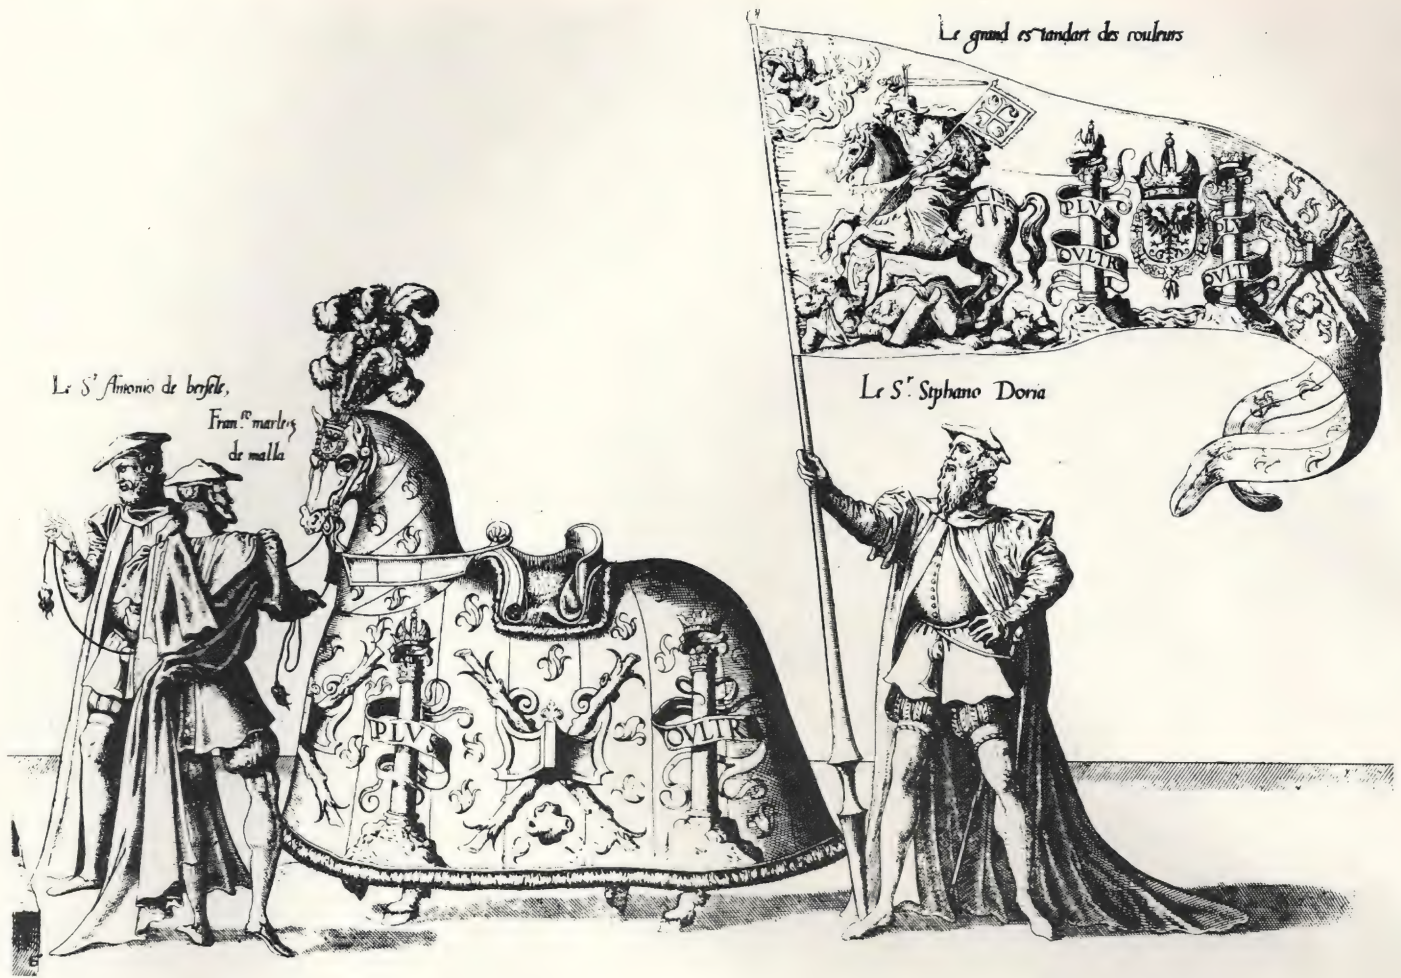 Le grand estandart des couleurs
PLVS
OVLTR
PLV
OVLT
Le Sr. Stphano Doria
Le Sr Antonio de berfele,
Fran.co marles
de malla
PLVS
OVLTR
6